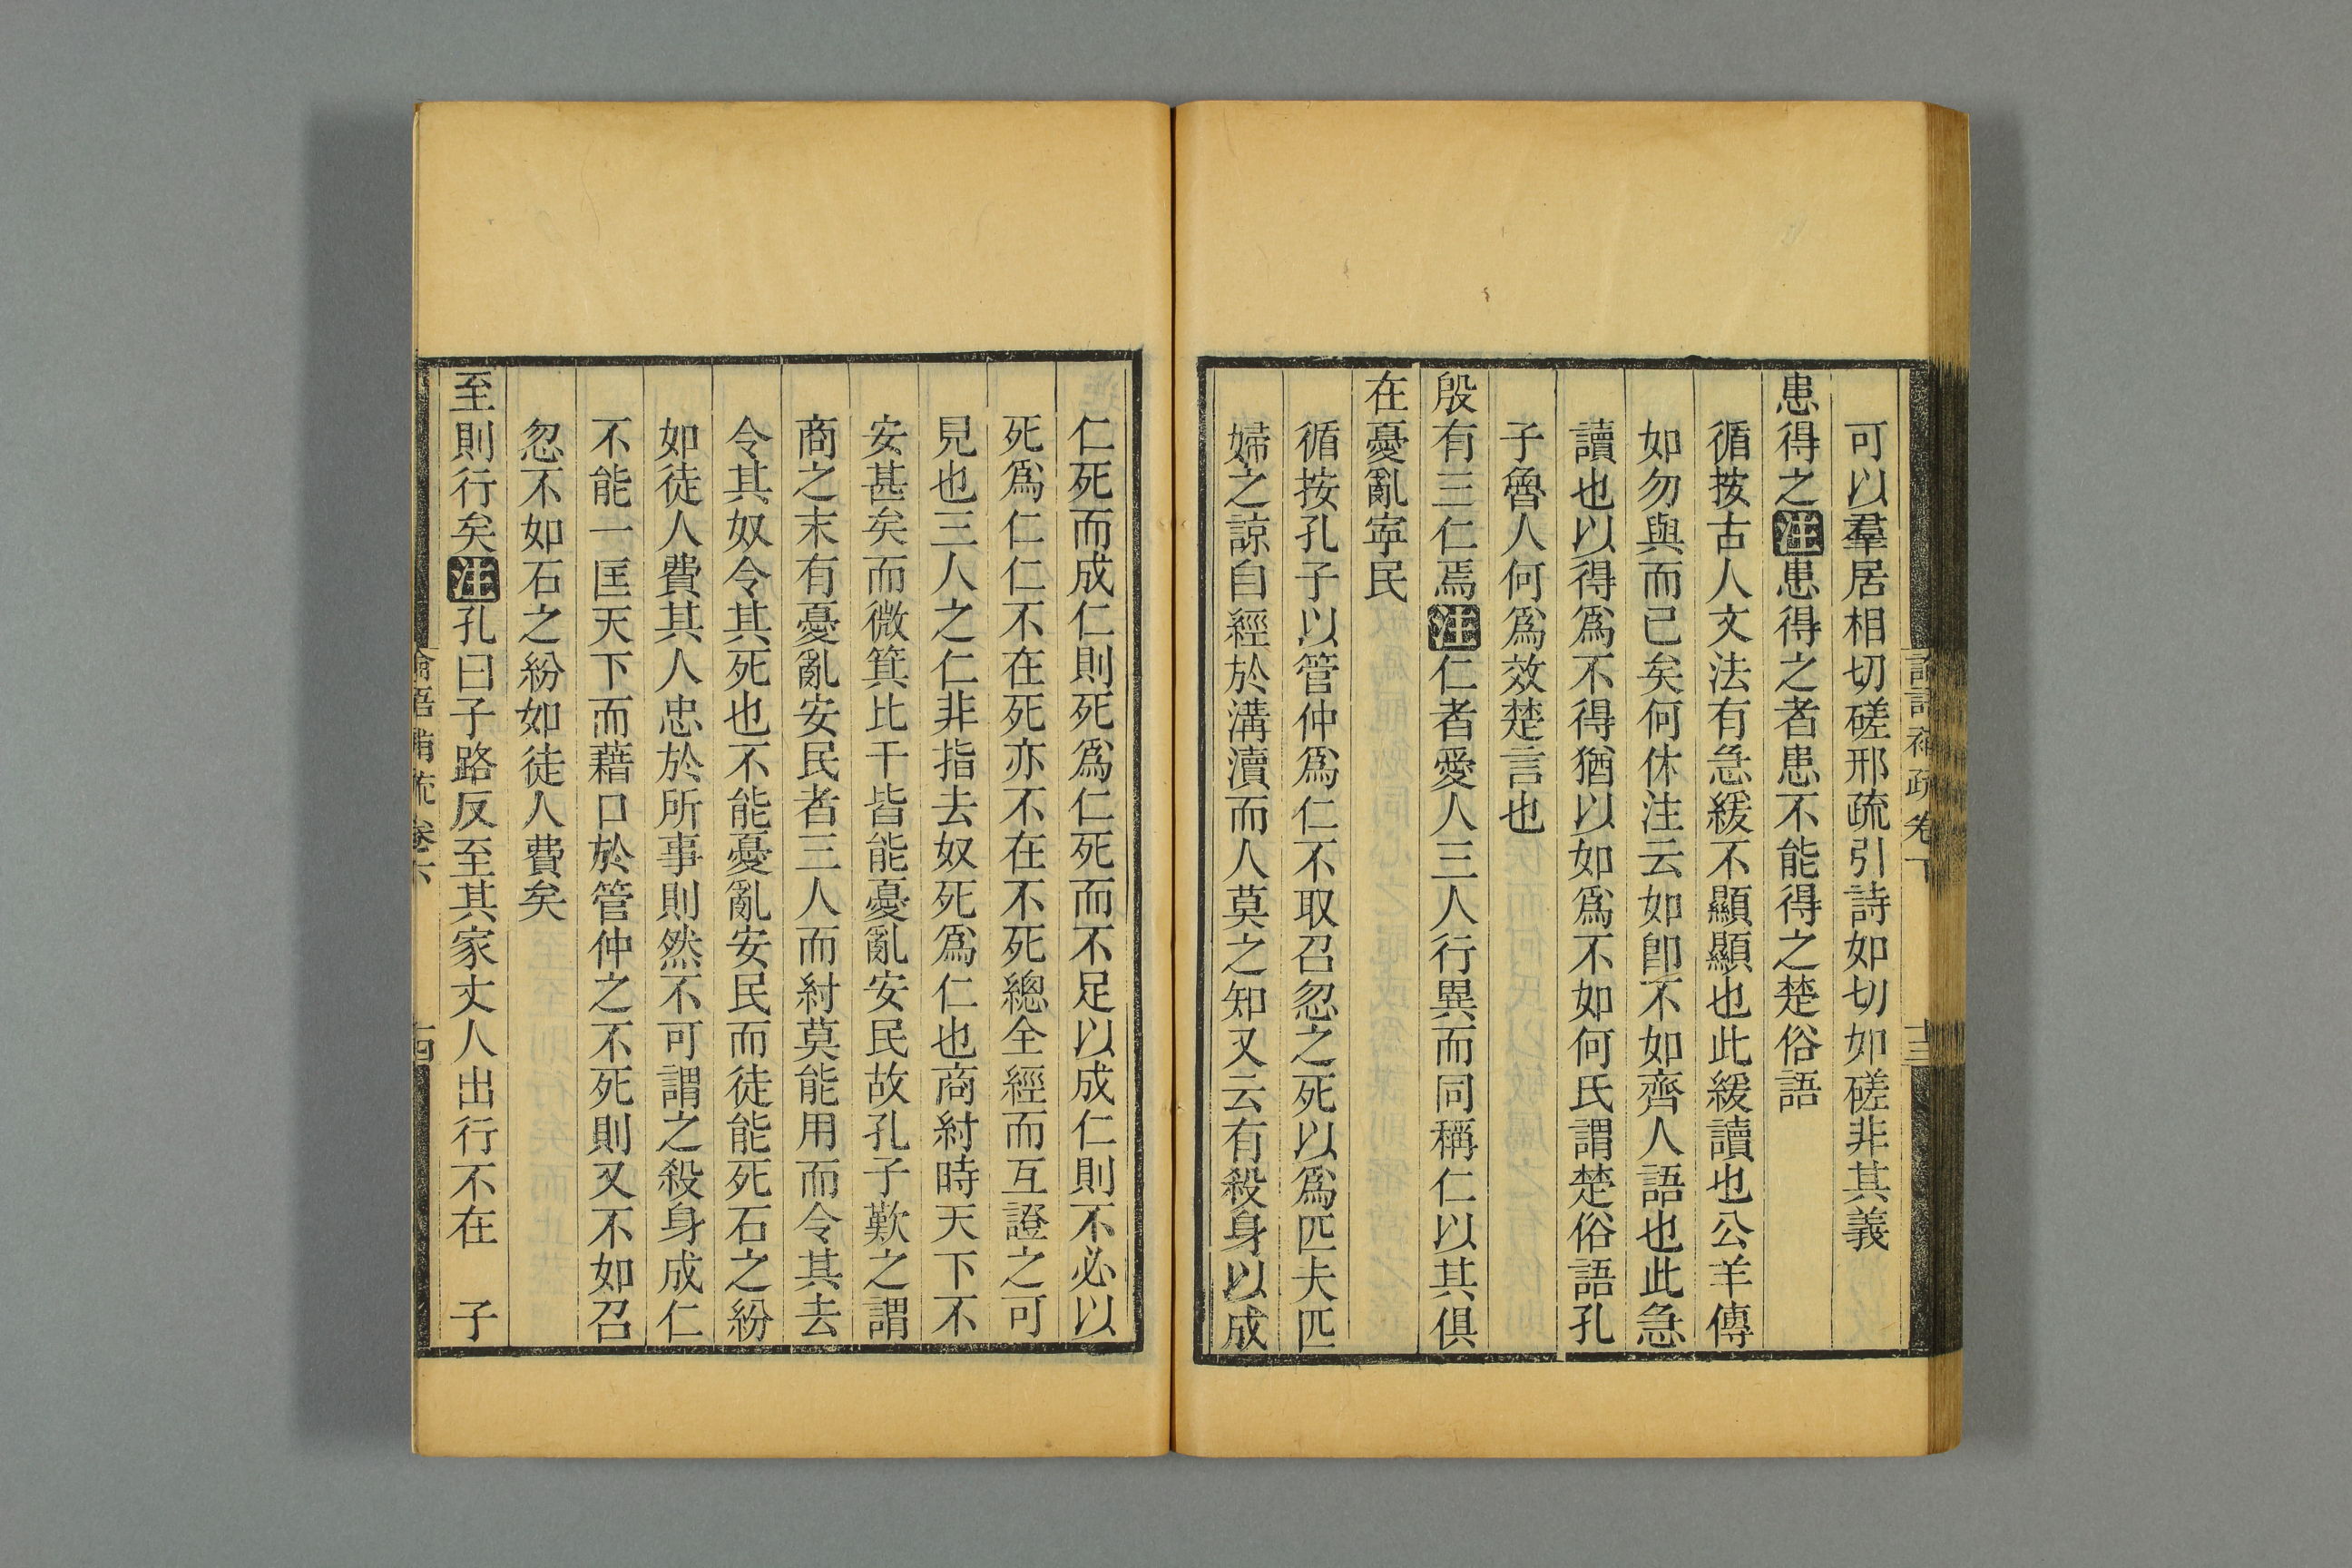 可以羣居相切磋邢疏引詩如切如磋非其義
患得之注患得之者患不能得之楚俗語
循按古人文法有急緩不顯顯也此緩讀也公羊傳
如勿與而已矣何休注云如卽不如齊人語也此急
讀也以得爲不得猶以如爲不如何氏謂楚俗語孔
子魯人何爲效楚言也
殷有三仁焉注仁者愛人三人行異而同稱仁以其俱
在憂亂寜民
循按孔子以管仲爲仁不取召忽之死以爲匹夫匹
婦之諒自經於溝瀆而人莫之知又云有殺身以成
仁死而成仁則死爲仁死而不足以成仁則不必以
死爲仁仁不在死亦不在不死總全經而互證之可
見也三人之仁非指去奴死爲仁也商紂時天下不
安甚矣而微箕比干皆能憂亂安民故孔子歎之謂
商之末有憂亂安民者三人而紂莫能用而令其去
令其奴令其死也不能憂亂安民而徒能死石之紛
如徒人費其人忠於所事則然不可謂之殺身成仁
不能一匡天下而藉口於管仲之不死則又不如召
忽不如石之紛如徒人費矣
至則行矣注孔曰子路反至其家丈人出行不在　子